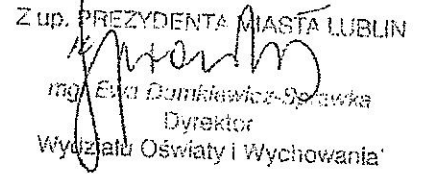 Z up. PREZYDENTA MIASTA LUBLIN
mgr Ewa Dumkiewicz-Sprawka
Dyrektor
Wydziału Oświaty i Wychowania